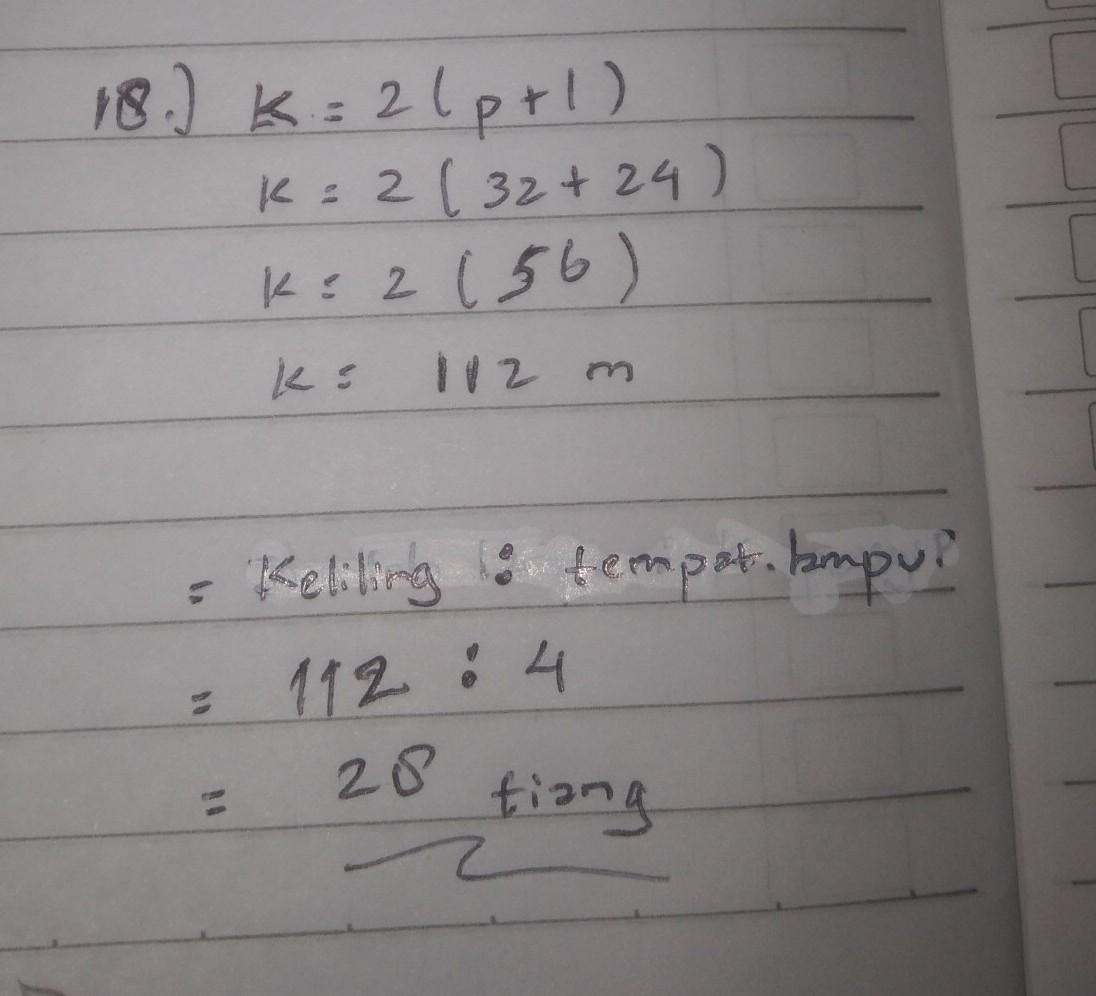 18.) K = 2(p+l)
K = 2(32+24)
K = 2(56)
K = 112 m
= Keliling : tempat lampu?
= 112 : 4
= 28 tiang